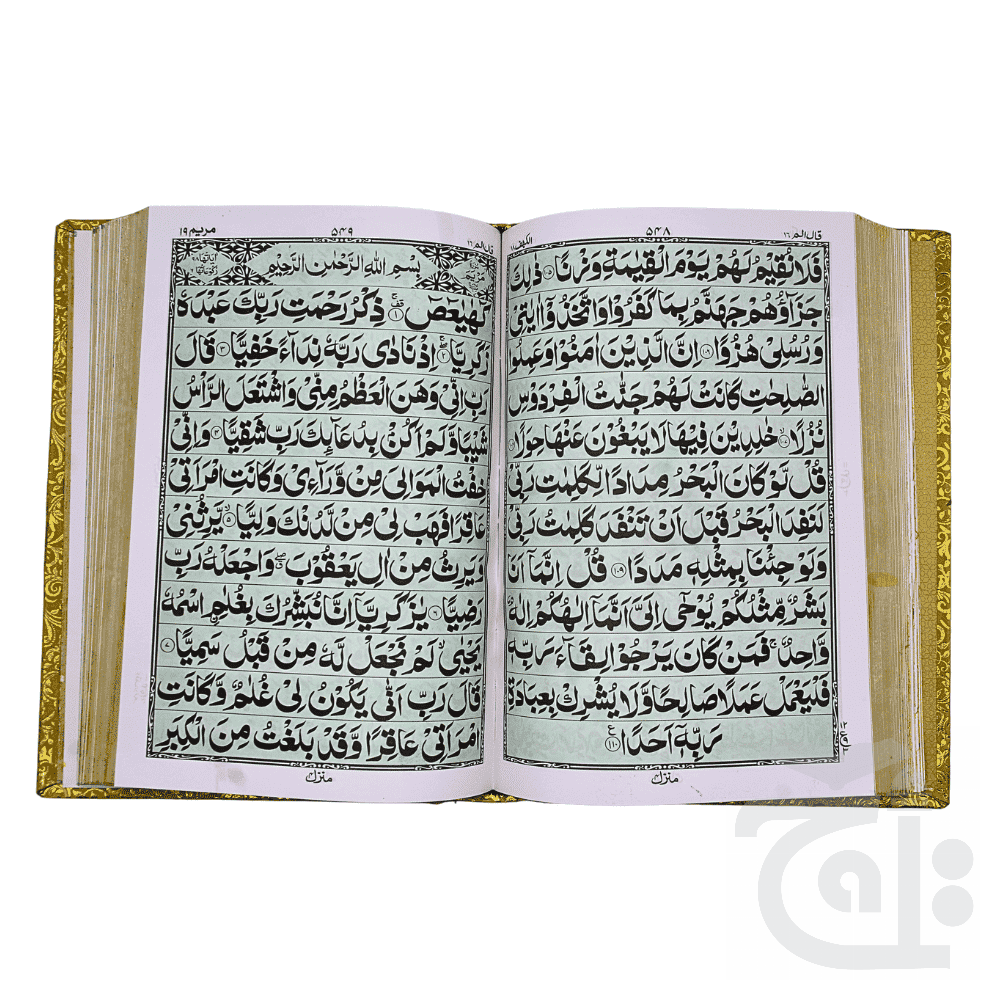 قال الم ١٦
۵۴۸
الكهف ١٨
فَلَا نُقِيْمُ لَهُمْ يَوْمَ الْقِيٰمَةِ وَزْنًا ۝١٠٥ ذٰلِكَ
جَزَآؤُهُمْ جَهَنَّمُ بِمَا كَفَرُوْا وَاتَّخَذُوْٓا اٰيٰتِيْ
وَرُسُلِيْ هُزُوًا ۝١٠٦ اِنَّ الَّذِيْنَ اٰمَنُوْا وَعَمِلُوا
الصّٰلِحٰتِ كَانَتْ لَهُمْ جَنّٰتُ الْفِرْدَوْسِ
نُزُلًا ۝١٠٧ خٰلِدِيْنَ فِيْهَا لَا يَبْغُوْنَ عَنْهَا حِوَلًا ۝١٠٨
قُلْ لَّوْ كَانَ الْبَحْرُ مِدَادًا لِّكَلِمٰتِ رَبِّيْ
لَنَفِدَ الْبَحْرُ قَبْلَ اَنْ تَنْفَدَ كَلِمٰتُ رَبِّيْ
وَلَوْ جِئْنَا بِمِثْلِهٖ مَدَدًا ۝١٠٩ قُلْ اِنَّمَآ اَنَا
بَشَرٌ مِّثْلُكُمْ يُوْحٰٓى اِلَيَّ اَنَّمَآ اِلٰهُكُمْ اِلٰهٌ
وَّاحِدٌ ۚ فَمَنْ كَانَ يَرْجُوْا لِقَآءَ رَبِّهٖ
فَلْيَعْمَلْ عَمَلًا صَالِحًا وَّلَا يُشْرِكْ بِعِبَادَةِ
رَبِّهٖٓ اَحَدًا ۝١١٠
منزل ۴
مريم ١٩
۵۴۹
قال الم ١٦
بِسْمِ اللّٰهِ الرَّحْمٰنِ الرَّحِيْمِ
كٓهٰيٰعٓصٓ ۝١ ذِكْرُ رَحْمَتِ رَبِّكَ عَبْدَهٗ
زَكَرِيَّا ۝٢ اِذْ نَادٰى رَبَّهٗ نِدَآءً خَفِيًّا ۝٣ قَالَ
رَبِّ اِنِّيْ وَهَنَ الْعَظْمُ مِنِّيْ وَاشْتَعَلَ الرَّاْسُ
شَيْبًا وَّلَمْ اَكُنْۢ بِدُعَآئِكَ رَبِّ شَقِيًّا ۝٤ وَاِنِّيْ
خِفْتُ الْمَوَالِيَ مِنْ وَّرَآءِيْ وَكَانَتِ امْرَاَتِيْ
عَاقِرًا فَهَبْ لِيْ مِنْ لَّدُنْكَ وَلِيًّا ۝٥ يَّرِثُنِيْ
وَيَرِثُ مِنْ اٰلِ يَعْقُوْبَ وَاجْعَلْهُ رَبِّ
رَضِيًّا ۝٦ يٰزَكَرِيَّآ اِنَّا نُبَشِّرُكَ بِغُلٰمِ اسْمُهٗ
يَحْيٰى لَمْ نَجْعَلْ لَّهٗ مِنْ قَبْلُ سَمِيًّا ۝٧
قَالَ رَبِّ اَنّٰى يَكُوْنُ لِيْ غُلٰمٌ وَّكَانَتِ
امْرَاَتِيْ عَاقِرًا وَّقَدْ بَلَغْتُ مِنَ الْكِبَرِ
منزل ۴